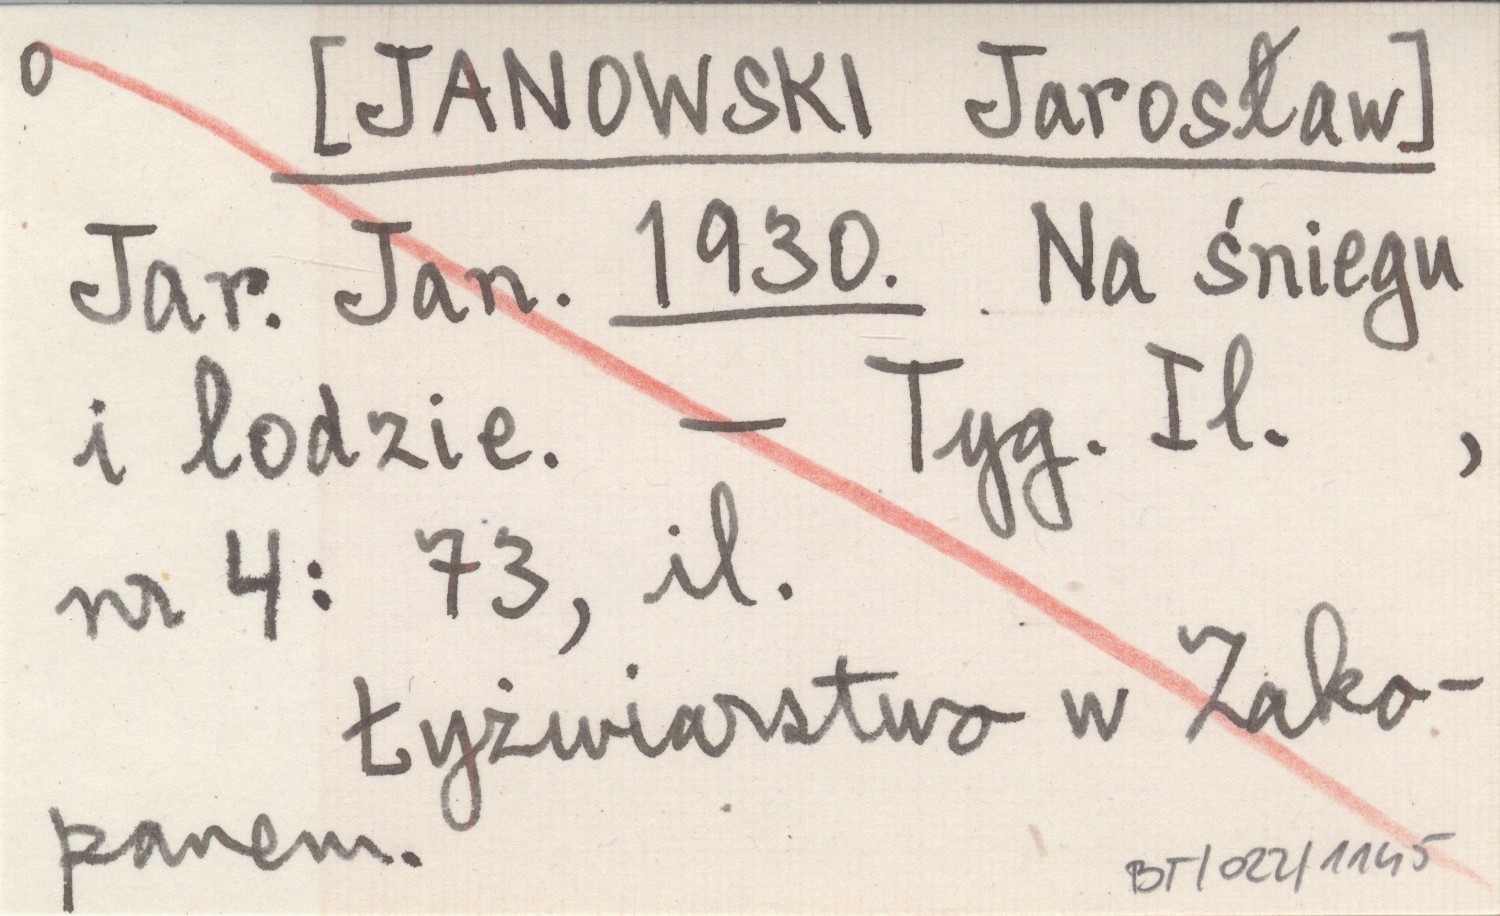 o [JANOWSKI Jarosław]
Jar. Jan. 1930. Na śniegu
i lodzie. — Tyg. Il. ,
nr 4: 73, il.
Łyżwiarstwo w Zako-
panem.
BT/022/1145